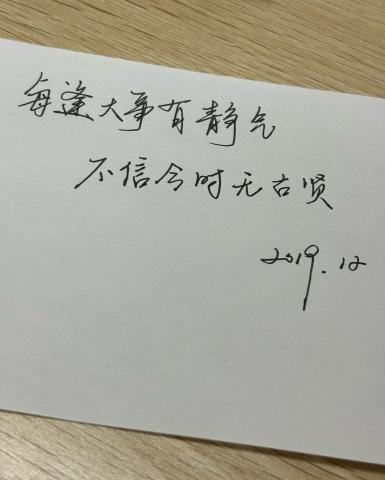 每逢大事有静气
不信今时无古贤
2019.12